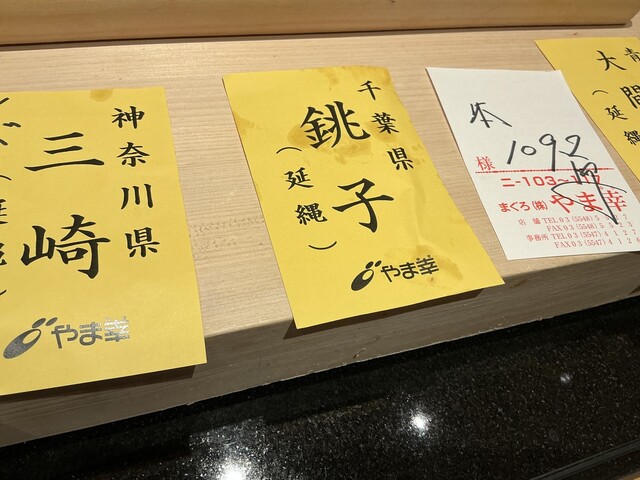 神奈川県
三崎
やま幸
千葉県
銚子
（延縄）
やま幸
本
1092
様
ニ-103-
まぐろ(株)やま幸
店舗TEL03(5548)5
FAX03(5548)5525
事務所TEL03(5547)4127
FAX03(5547)4124
青
大間
（延縄